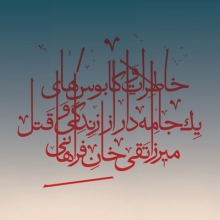 خاطرات و کابوس‌های
یک جامه‌دار از زندگی و قتل
میرزا تقی خان فراهانی